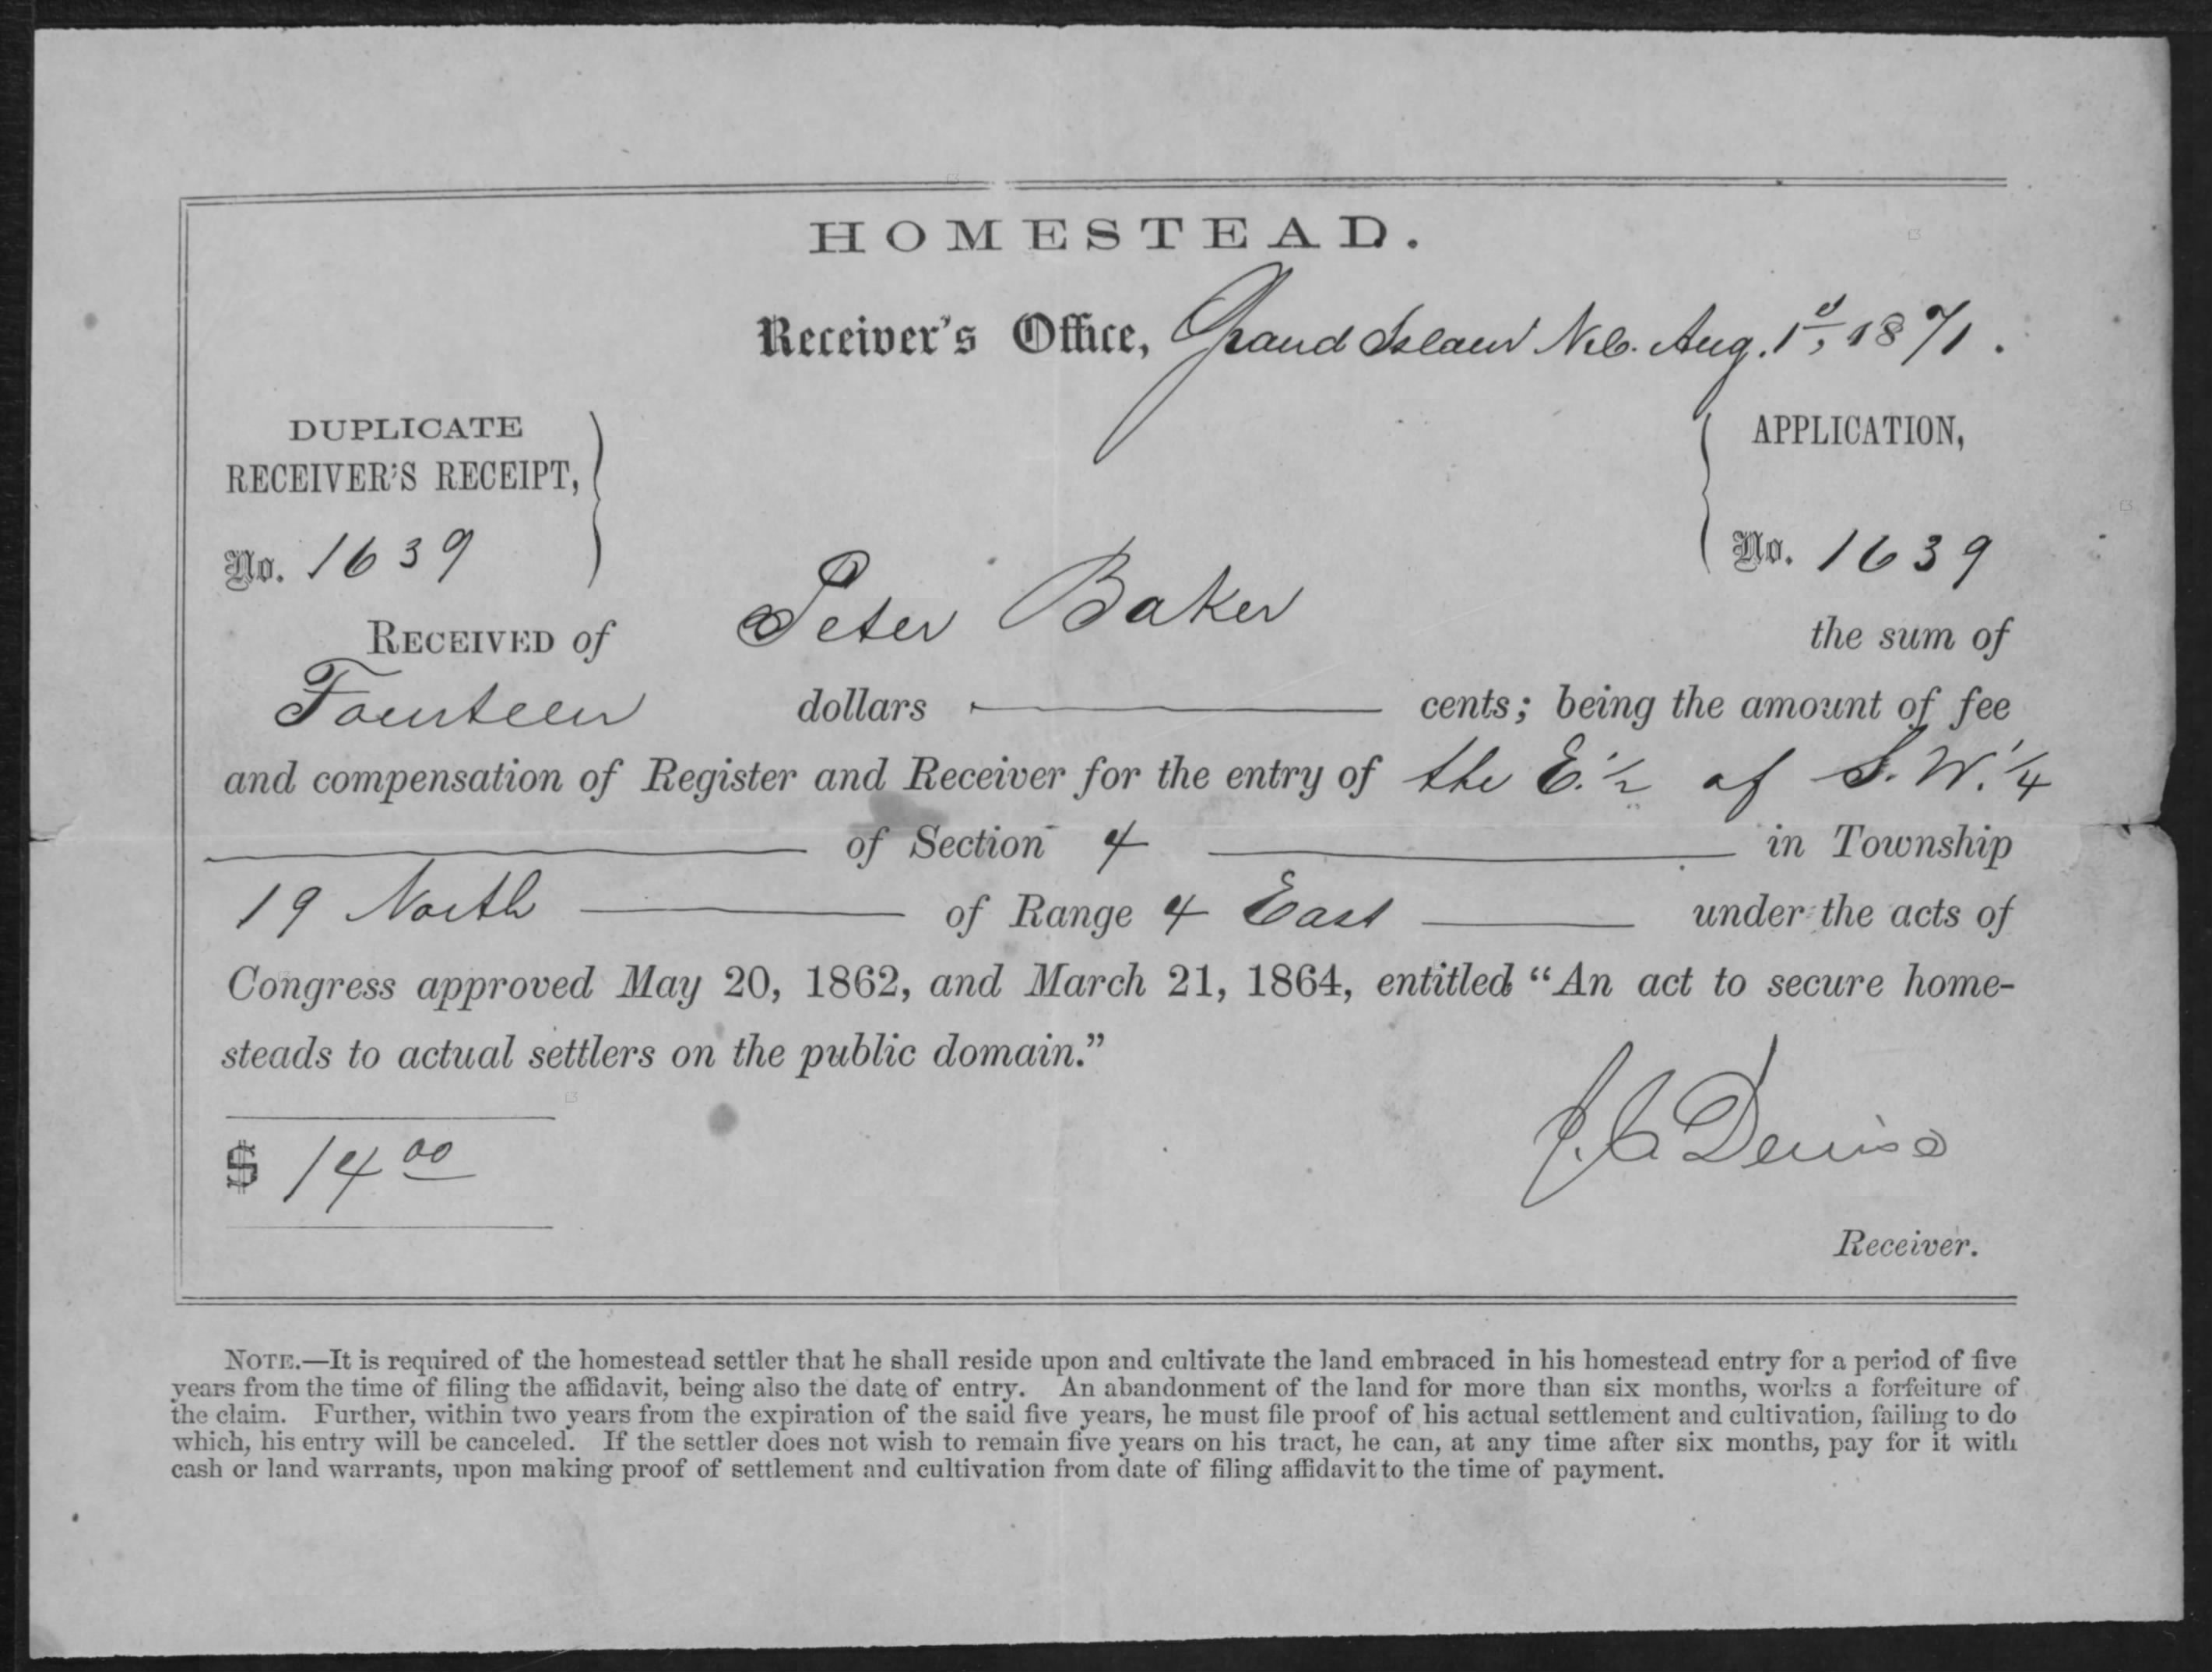 HOMESTEAD.
Receiver's Office, Grand Island Neb. Aug. 1st, 1871.
DUPLICATE
RECEIVER'S RECEIPT,
No. 1639
APPLICATION,
No. 1639
RECEIVED of Peter Baker the sum of
Fourteen dollars — cents; being the amount of fee
and compensation of Register and Receiver for the entry of the E. ½ of S. W. ¼
— of Section 4 — in Township
19 North — of Range 4 East — under the acts of
Congress approved May 20, 1862, and March 21, 1864, entitled “An act to secure home-
steads to actual settlers on the public domain.”
$ 14 00
J. C. Denise
Receiver.
NOTE.—It is required of the homestead settler that he shall reside upon and cultivate the land embraced in his homestead entry for a period of five
years from the time of filing the affidavit, being also the date of entry. An abandonment of the land for more than six months, works a forfeiture of
the claim. Further, within two years from the expiration of the said five years, he must file proof of his actual settlement and cultivation, failing to do
which, his entry will be canceled. If the settler does not wish to remain five years on his tract, he can, at any time after six months, pay for it with
cash or land warrants, upon making proof of settlement and cultivation from date of filing affidavit to the time of payment.